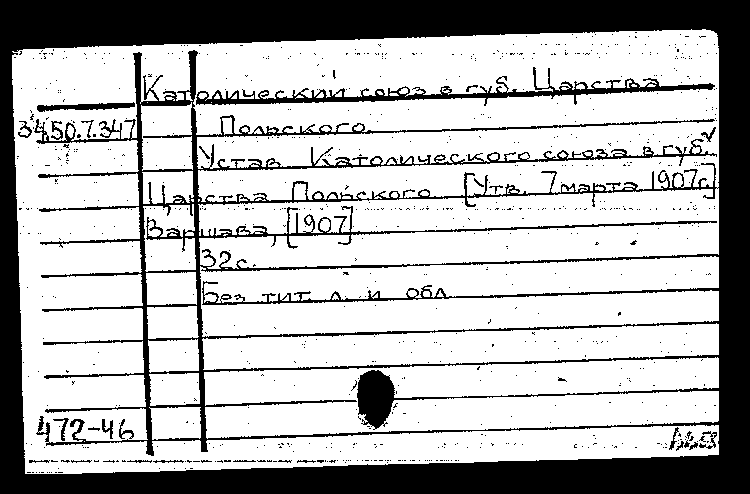 Католический союз в губ. Царства
34.50.7.347 Польского.
Устав Католического союза в губ.
Царства Польского [Утв. 7 марта 1907г.]
Варшава, [1907]
32с.
Без тит. л. и обл
472-46